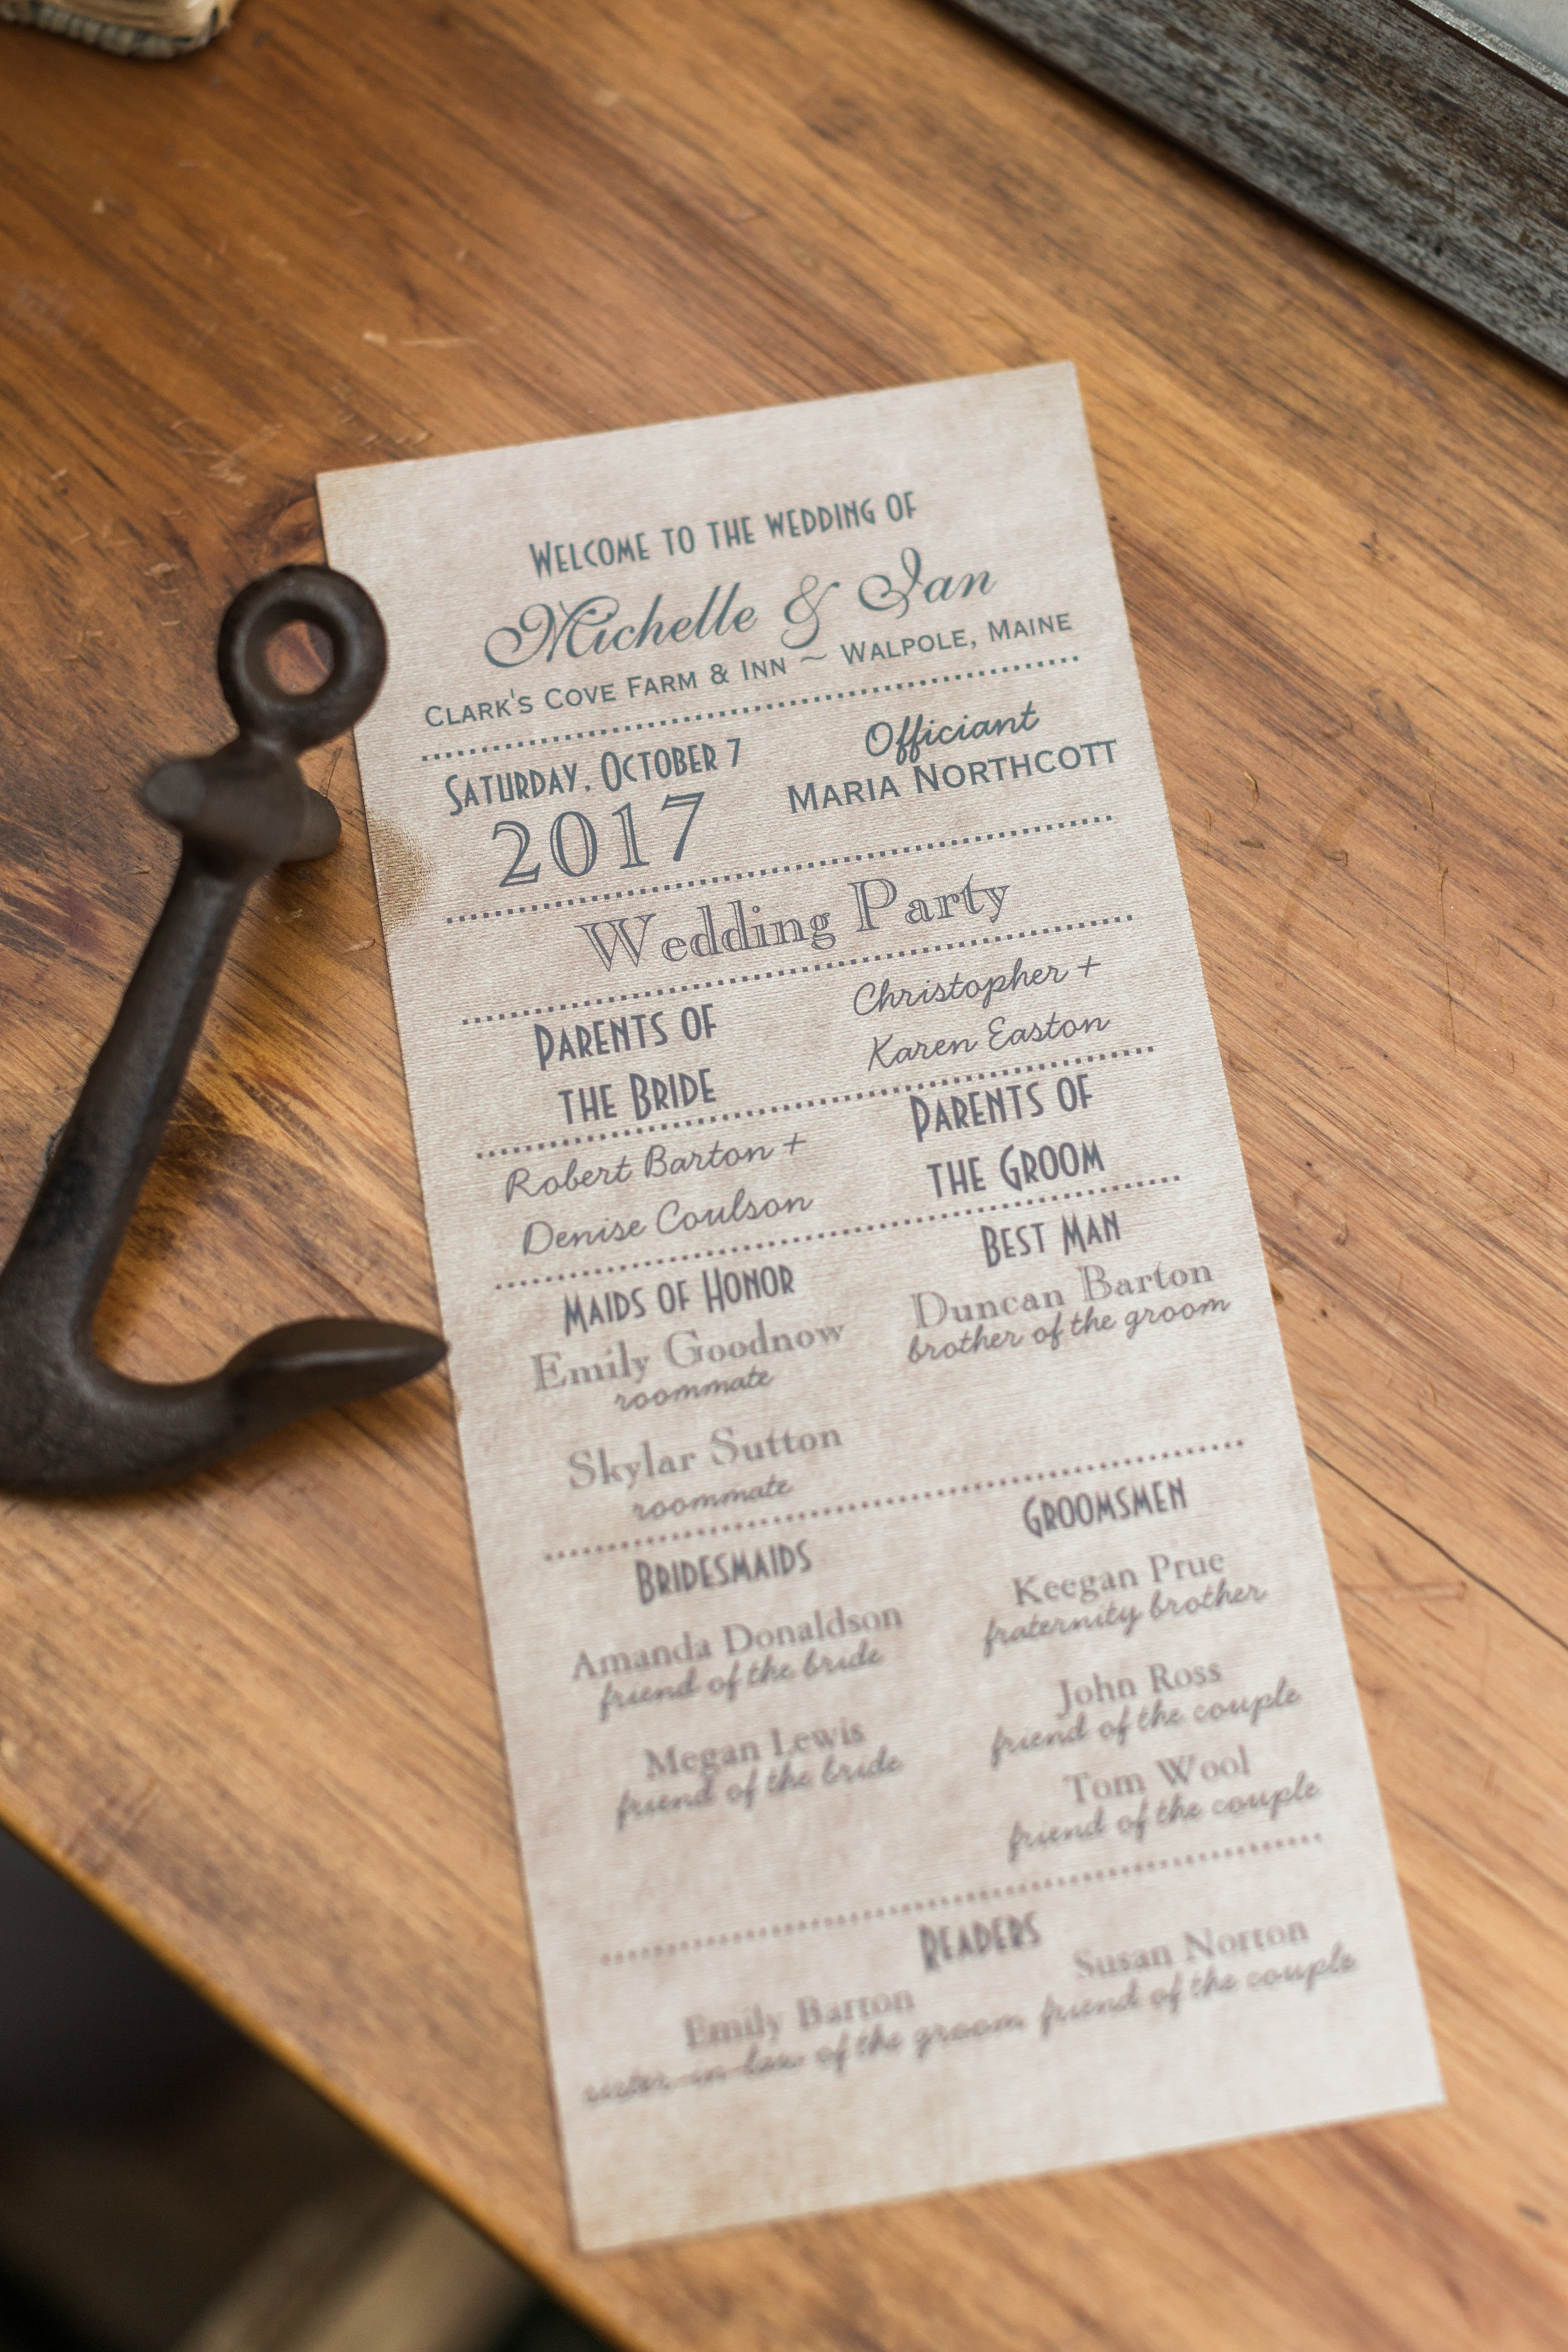 Welcome to the wedding of
Michelle & Ian
Clark's Cove Farm & Inn ~ Walpole, Maine
Saturday, October 7
2017
Officiant
Maria Northcott
Wedding Party
Parents of
the Bride
Christopher +
Karen Easton
Robert Barton +
Denise Coulson
Parents of
the Groom
Maids of Honor
Emily Goodnow
roommate
Skylar Sutton
roommate
Best Man
Duncan Barton
brother of the groom
Bridesmaids
Amanda Donaldson
friend of the bride
Megan Lewis
friend of the bride
Groomsmen
Keegan Prue
fraternity brother
John Ross
friend of the couple
Tom Wool
friend of the couple
Readers
Emily Barton
sister-in-law of the groom
Susan Norton
friend of the couple